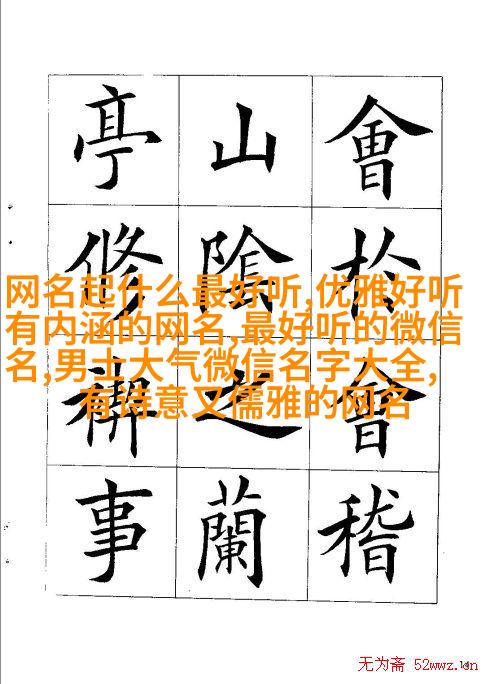 會於會稽
山陰之蘭
亭修禊事
网名起什么最好听,优雅好听
有内涵的网名,最好听的微信
名,男士大气微信名字大全,
有诗意又儒雅的网名
无为斋 52wwz.cn